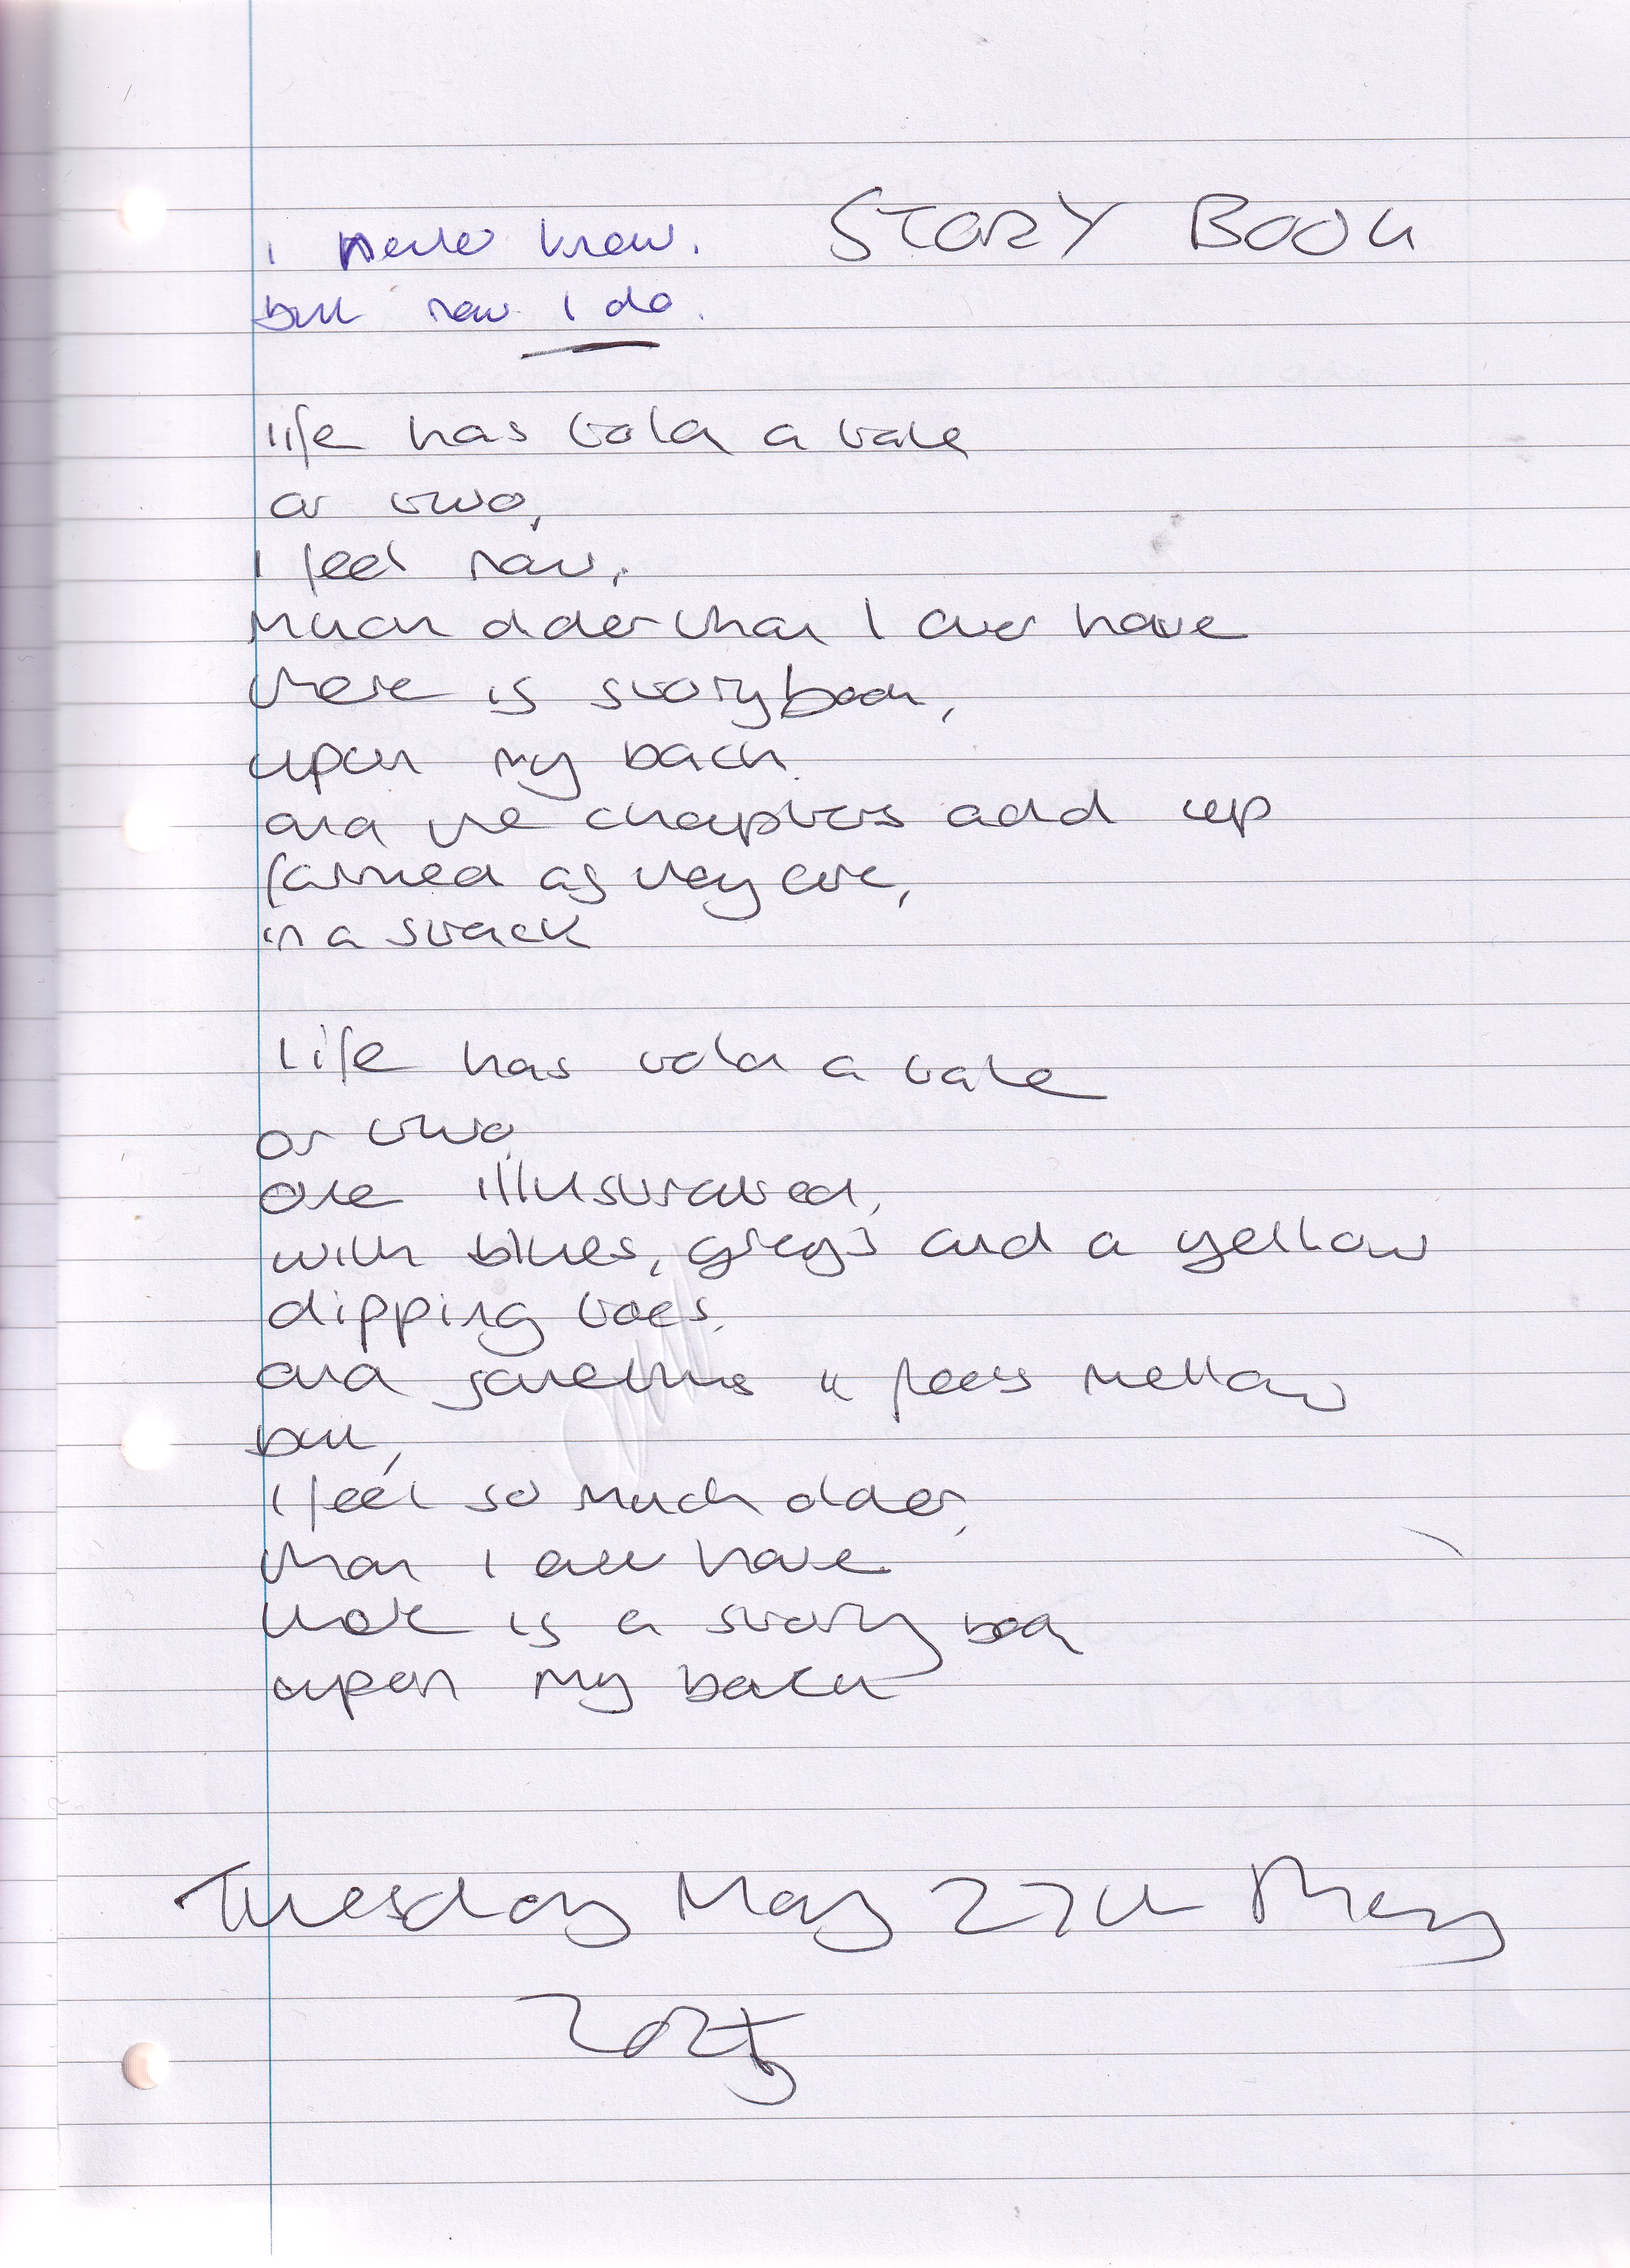 STORY BOOK
i never knew.
but now I do.
life has told a tale
or two,
I feel now,
much older than I ever have
there is storybook,
upon my back.
and the chapters add up
formed as they are,
in a stack
Life has told a tale
or two
one illustrated,
with blues, greys and a yellow
dipping toes,
and sometimes it feels mellow
but,
I feel so much older,
than I ever have
there is a story book
upon my back
Tuesday May 27th May
2025